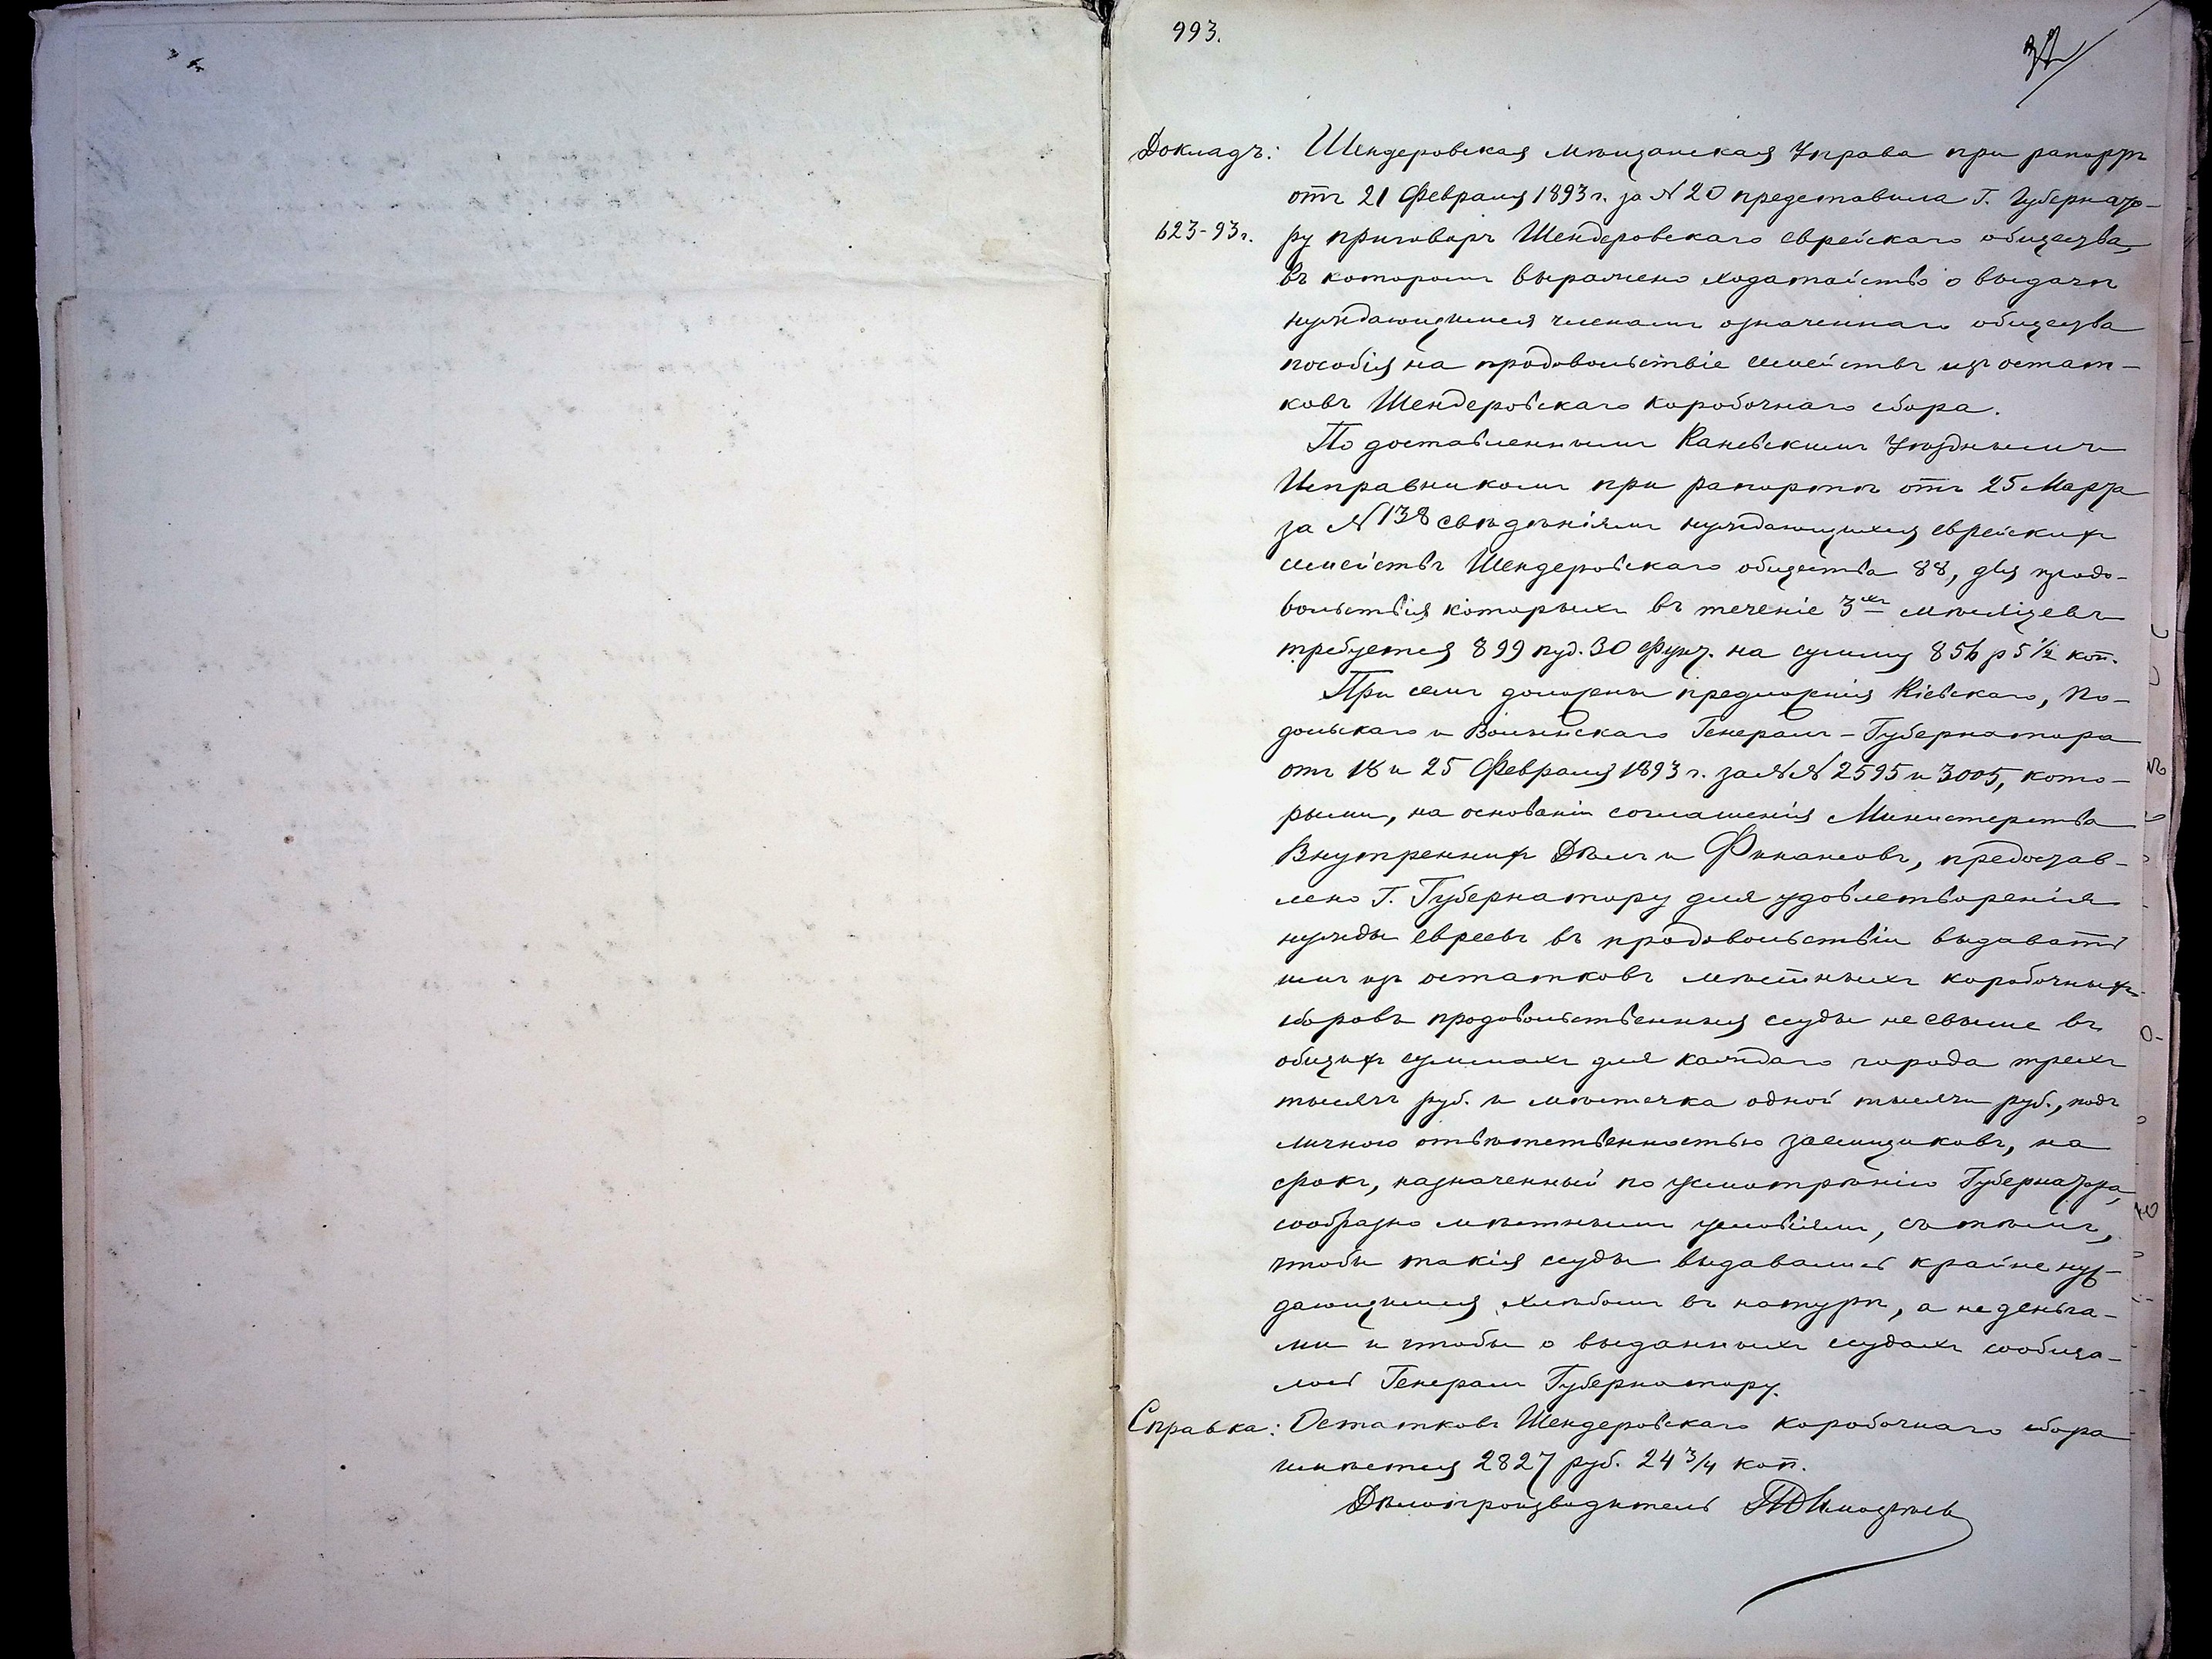 993.
37
Докладъ: Шендеровская мѣщанская Управа при рапортѣ
отъ 21 Февраля 1893 г. за № 20 представила Г. Губернато-
623-93 г. ру приговоръ Шендеровскаго еврейскаго общества,
въ которомъ выражено ходатайство о выдачѣ
нуждающимся членамъ означеннаго общества
пособія на продовольствіе семействъ изъ остат-
ковъ Шендеровскаго коробочнаго сбора.
По доставленнымъ Каневскимъ Уѣзднымъ
Исправникомъ при рапортѣ отъ 25 Марта
за № 138 свѣдѣніямъ нуждающихся еврейскихъ
семействъ Шендеровскаго общества 88, для продо-
вольствія которыхъ въ теченіе 3хъ мѣсяцевъ
требуется 899 пуд. 30 Фунт. на сумму 856 р 5 1/2 коп.
При семъ доложены предложенія Кіевскаго, По-
дольскаго и Волынскаго Генералъ-Губернатора
отъ 18 и 25 Февраля 1893 г. за №№ 2595 и 3005, кото-
рыми, на основаніи соглашенія Министерства
Внутреннихъ Дѣлъ и Финансовъ, предостав-
лено Г. Губернатору для удовлетворенія
нужды евреевъ въ продовольствіи выдавать
имъ изъ остатковъ мѣстныхъ коробочныхъ
сборовъ продовольственныя ссуды не свыше въ
общихъ суммахъ для каждаго города трехъ
тысячъ руб. и мѣстечка одной тысячи руб., подъ
личною отвѣтственностью заемщиковъ, на
срокъ, назначенный по усмотрѣнію Губернатора,
сообразно мѣстнымъ условіямъ, съ тѣмъ,
чтобы такія ссуды выдавались крайне нуж-
дающимся хлѣбомъ въ натурѣ, а не деньга-
ми и чтобы о выданныхъ ссудахъ сообща-
лось Генералъ Губернатору.
Справка: Остатковъ Шендеровскаго коробочнаго сбора
имѣется 2827 руб. 24 3/4 коп.
Дѣлопроизводитель